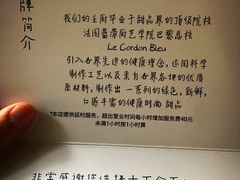 牌简介
我们的主厨毕业于甜品界的顶级院校
法国蓝带厨艺学院巴黎总校
Le Cordon Bleu
引入世界先进的健康理念，运用科学
制作工艺以及来自世界各地的优质
原材料，制作出一系列的绿色，新鲜，
口感丰富的健康时尚甜品
*本店提供延时服务，超出营业时间每小时增加服务费40元
未满1小时按1小时算
非常感谢您选择